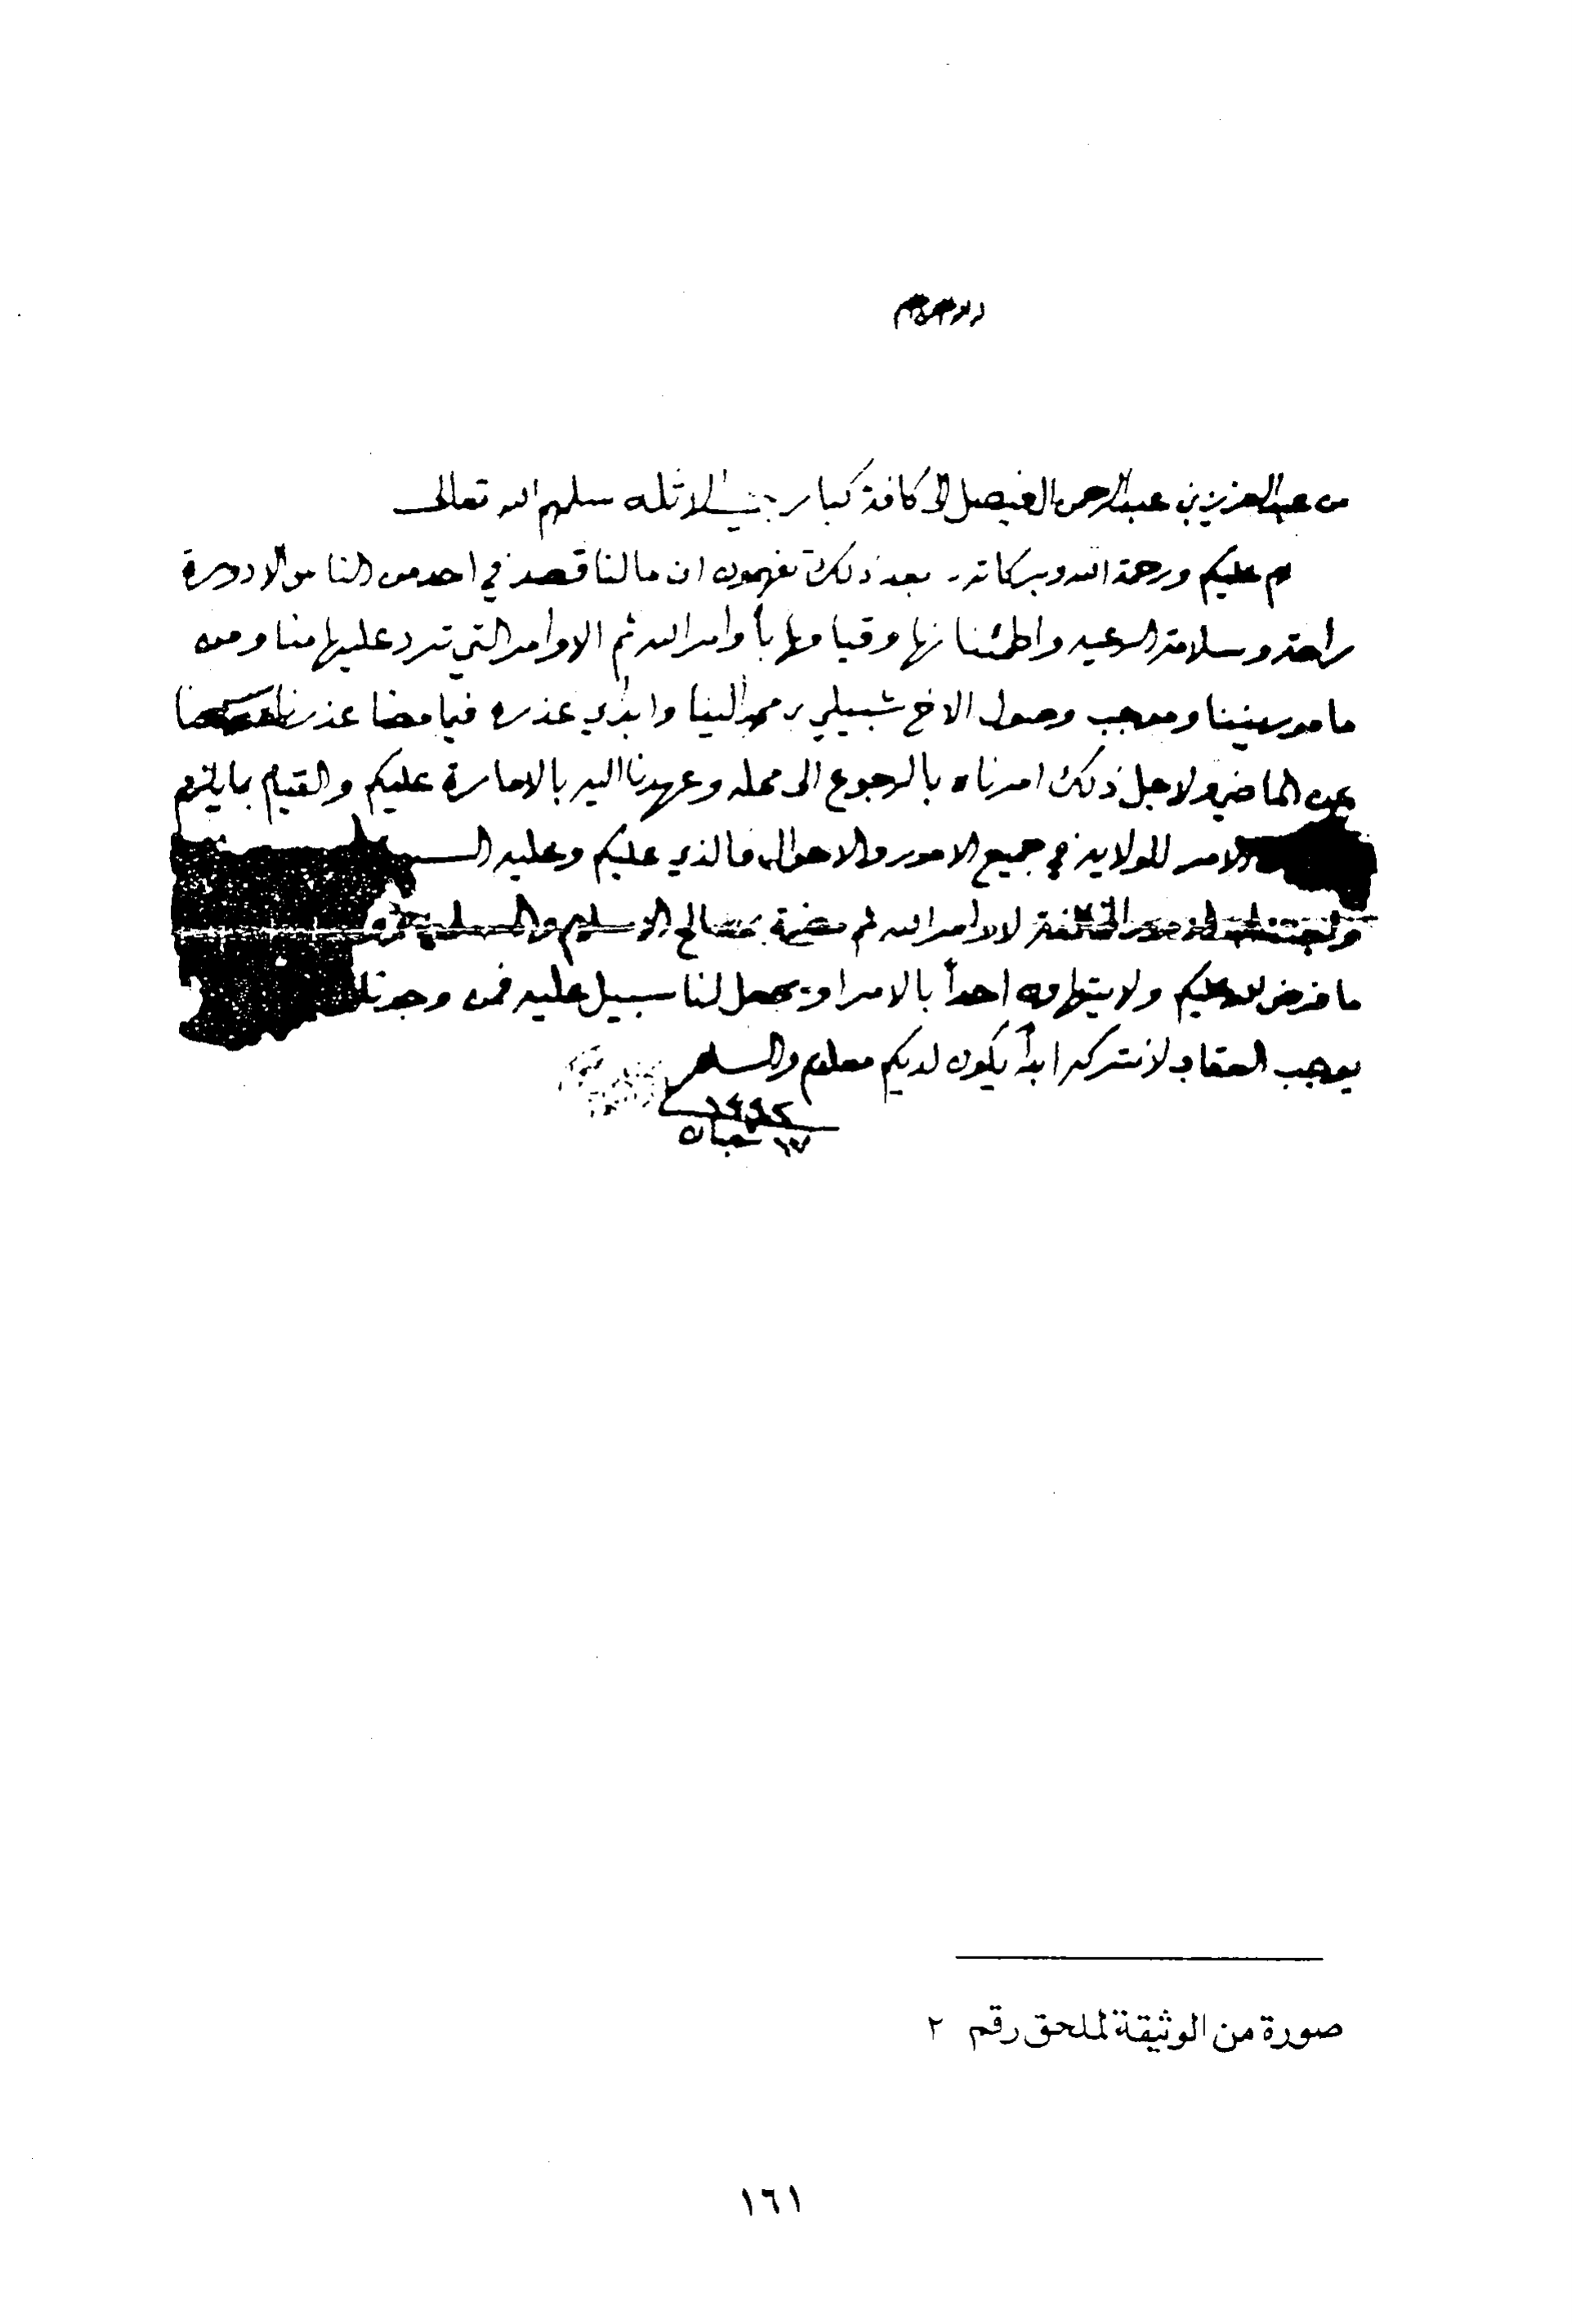 من عبدالعزيز بن عبدالرحمن الفيصل الى كافة كبار الاثله سلمهم الله تعالى
عليكم ورحمة الله وبركاته. بعد ذلك تفهمون ان مالنا قصد في احد من الناس الا
راحة وسلامة الرعيه واطمئنانها وقيامها بأوامر الله ثم الاوامر التي ترد عليها منا ومن
مامورينينا وموجب وصول الاخ شبيلي بن محمد الينا وابدى عذره فيما مضا عذرناه
عن الماضي ولاجل ذلك امرناه بالرجوع الى محله وعهدنا اليه بالامارة عليكم والقيام بما يلزم
والامر للولايه في جميع الامور والاحوال فالذي عليكم وعليه
المخالفة لاوامر الله ثم مضرة بمصالح الاسلام والمسلمين
ما فرض الله عليكم ولا يتهاون احداً بالامر او يجعل لنا سبيل عليه فمن وجدنا
يوجب العقاب لا نتركه ابداً يكون لديكم معلوم والسلام
شعبان
صورة من الوثيقة لملحق رقم ٢
١٦١